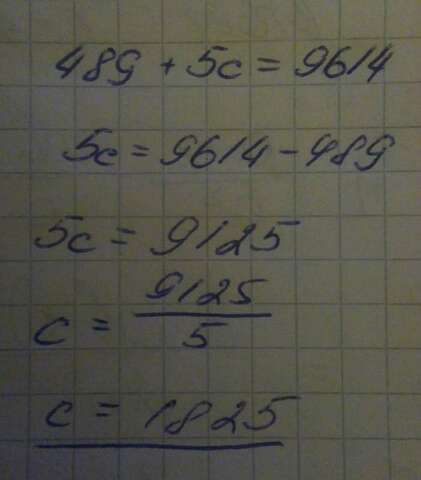 489 + 5c = 9614
5c = 9614 - 489
5c = 9125
c = 9125/5
c = 1825